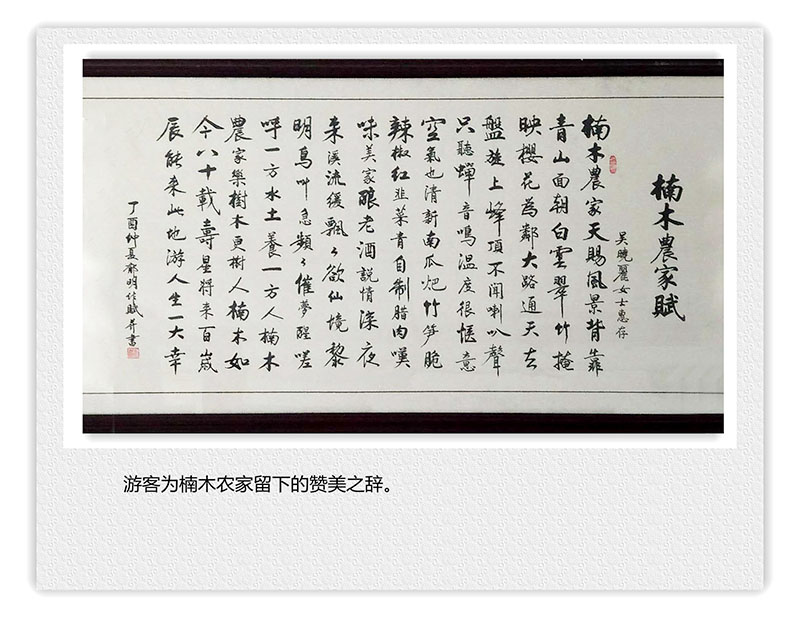 楠木農家賦
吴曉麗女士惠存
楠木農家天賜風景背靠
青山面朝白雲翠竹掩
映櫻花為鄰大路通天去
盤旋上峰頂不闻喇叭聲
只聽蟬音鳴温度很惬意
空氣也清新南瓜𤆵竹笋脆
辣椒红韭菜青自制腊肉嘆
味美家酿老酒説情深夜
来溪流缓飄々欲仙境黎
明鳥叫急頻々催夢醒嗟
呼一方水土養一方人楠木
農家樂樹木更樹人楠木如
今八十載壽星將来百歲
辰能来此地游人生一大幸
丁酉仲夏郁明作賦并書
游客为楠木农家留下的赞美之辞。